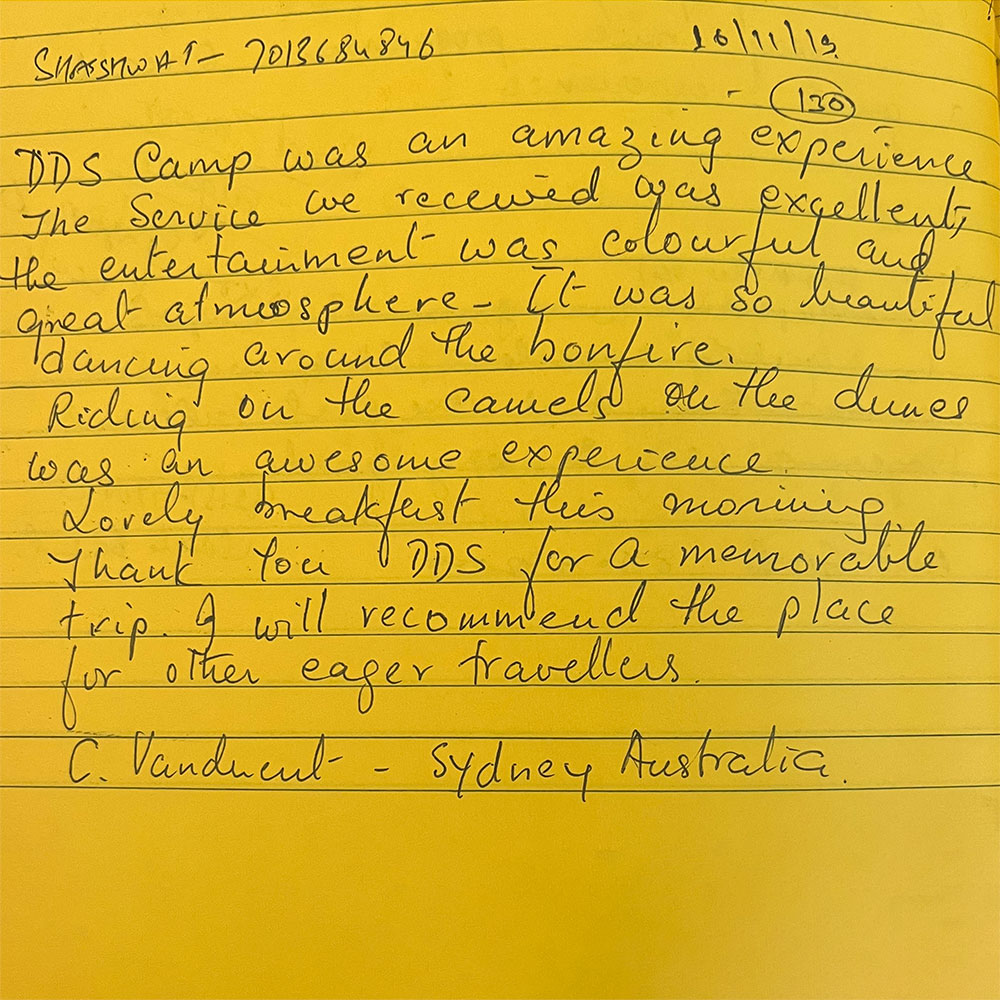 SHASHWAT - 7013684846
16/11/19
130
DDS Camp was an amazing experience
The Service we received was excellent,
the entertainment was colourful and
great atmosphere - It was so beautiful
dancing around the bonfire.
Riding on the camels on the dunes
was an awesome experience.
Lovely breakfast this morning
Thank You DDS for a memorable
trip. I will recommend the place
for other eager travellers.
C. - Sydney Australia.